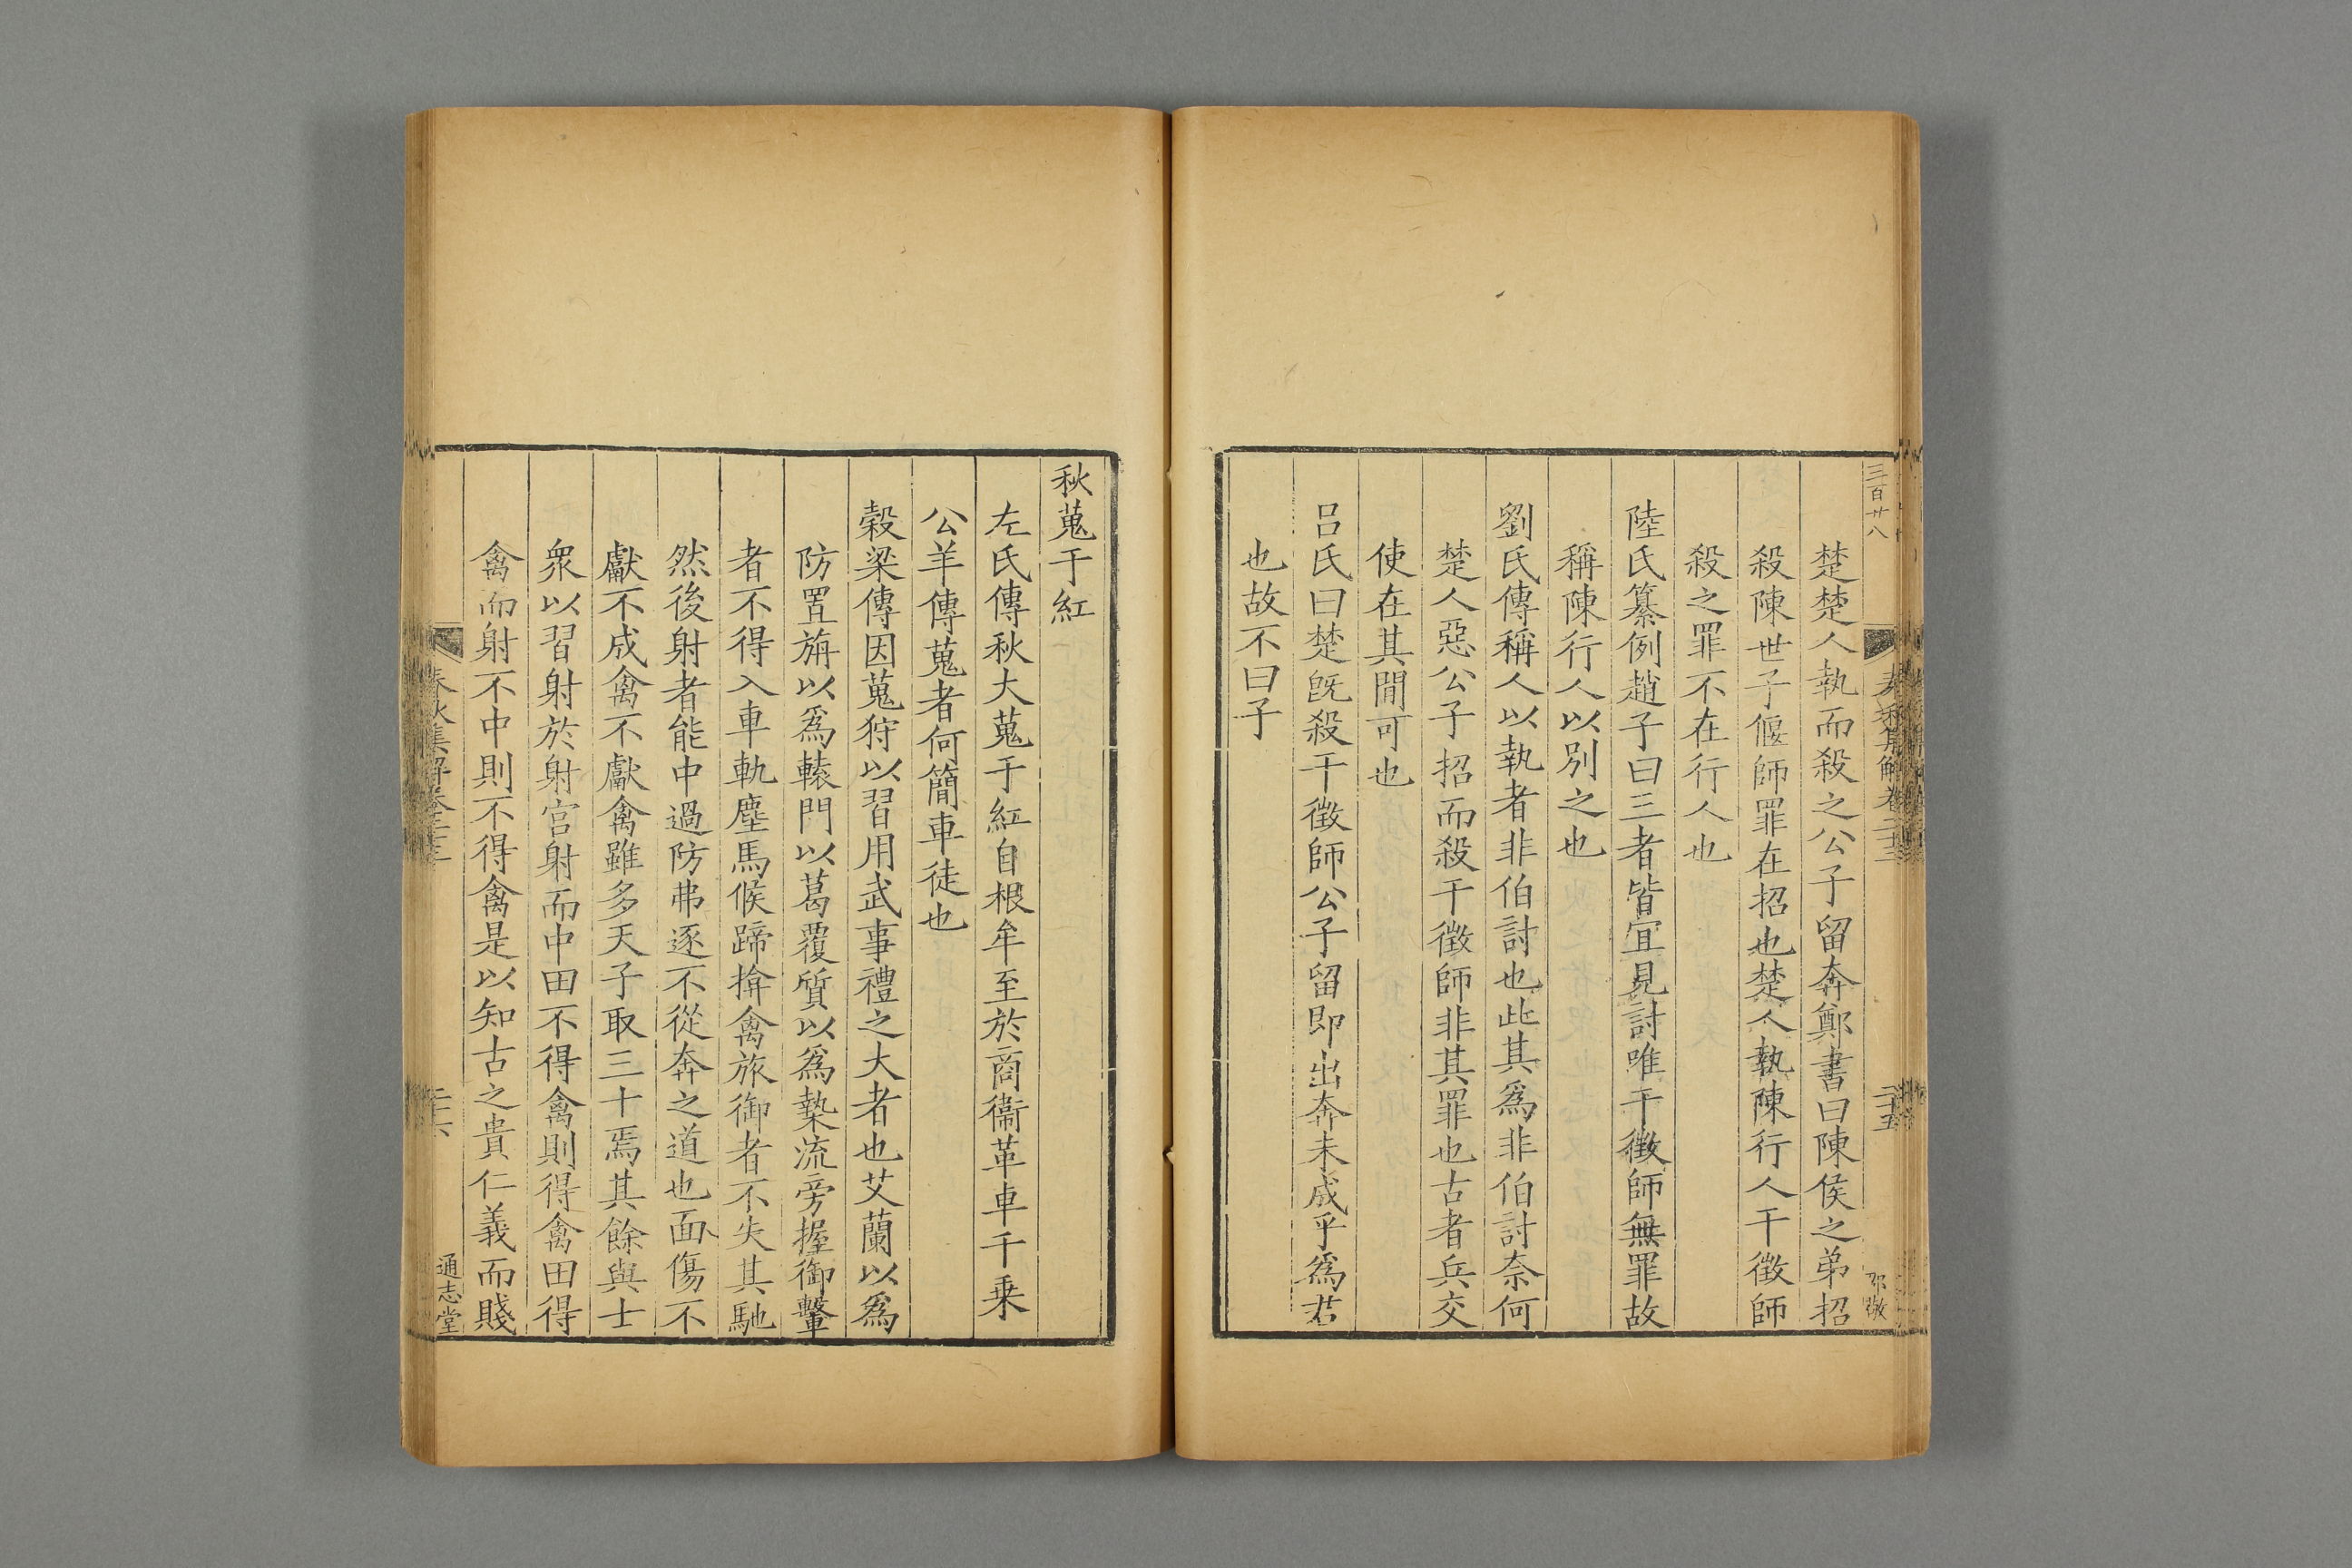 三百廿八
春秋集解卷二十三
二十五
楚楚人執而殺之公子留奔鄭書曰陳侯之弟招
殺陳世子偃師罪在招也楚人執陳行人干徵師
殺之罪不在行人也
陸氏纂例趙子曰三者皆宜見討唯干徵師無罪故
稱陳行人以別之也
劉氏傳稱人以執者非伯討也此其爲非伯討奈何
楚人惡公子招而殺干徵師非其罪也古者兵交
使在其間可也
呂氏曰楚旣殺干徵師公子留即出奔未成乎爲君
也故不曰子
秋蒐于紅
左氏傳秋大蒐于紅自根牟至於商衞革車千乗
公羊傳蒐者何簡車徒也
穀梁傳因蒐狩以習用武事禮之大者也艾蘭以爲
防置旃以爲轅門以葛覆質以爲槷流旁握御轚
者不得入車軌塵馬候蹄揜禽旅御者不失其馳
然後射者能中過防弗逐不從奔之道也面傷不
獻不成禽不獻禽雖多天子取三十焉其餘與士
衆以習射於射宫射而中田不得禽則得禽田得
禽而射不中則不得禽是以知古之貴仁義而賤
春秋集解卷二十三
二十六
通志堂